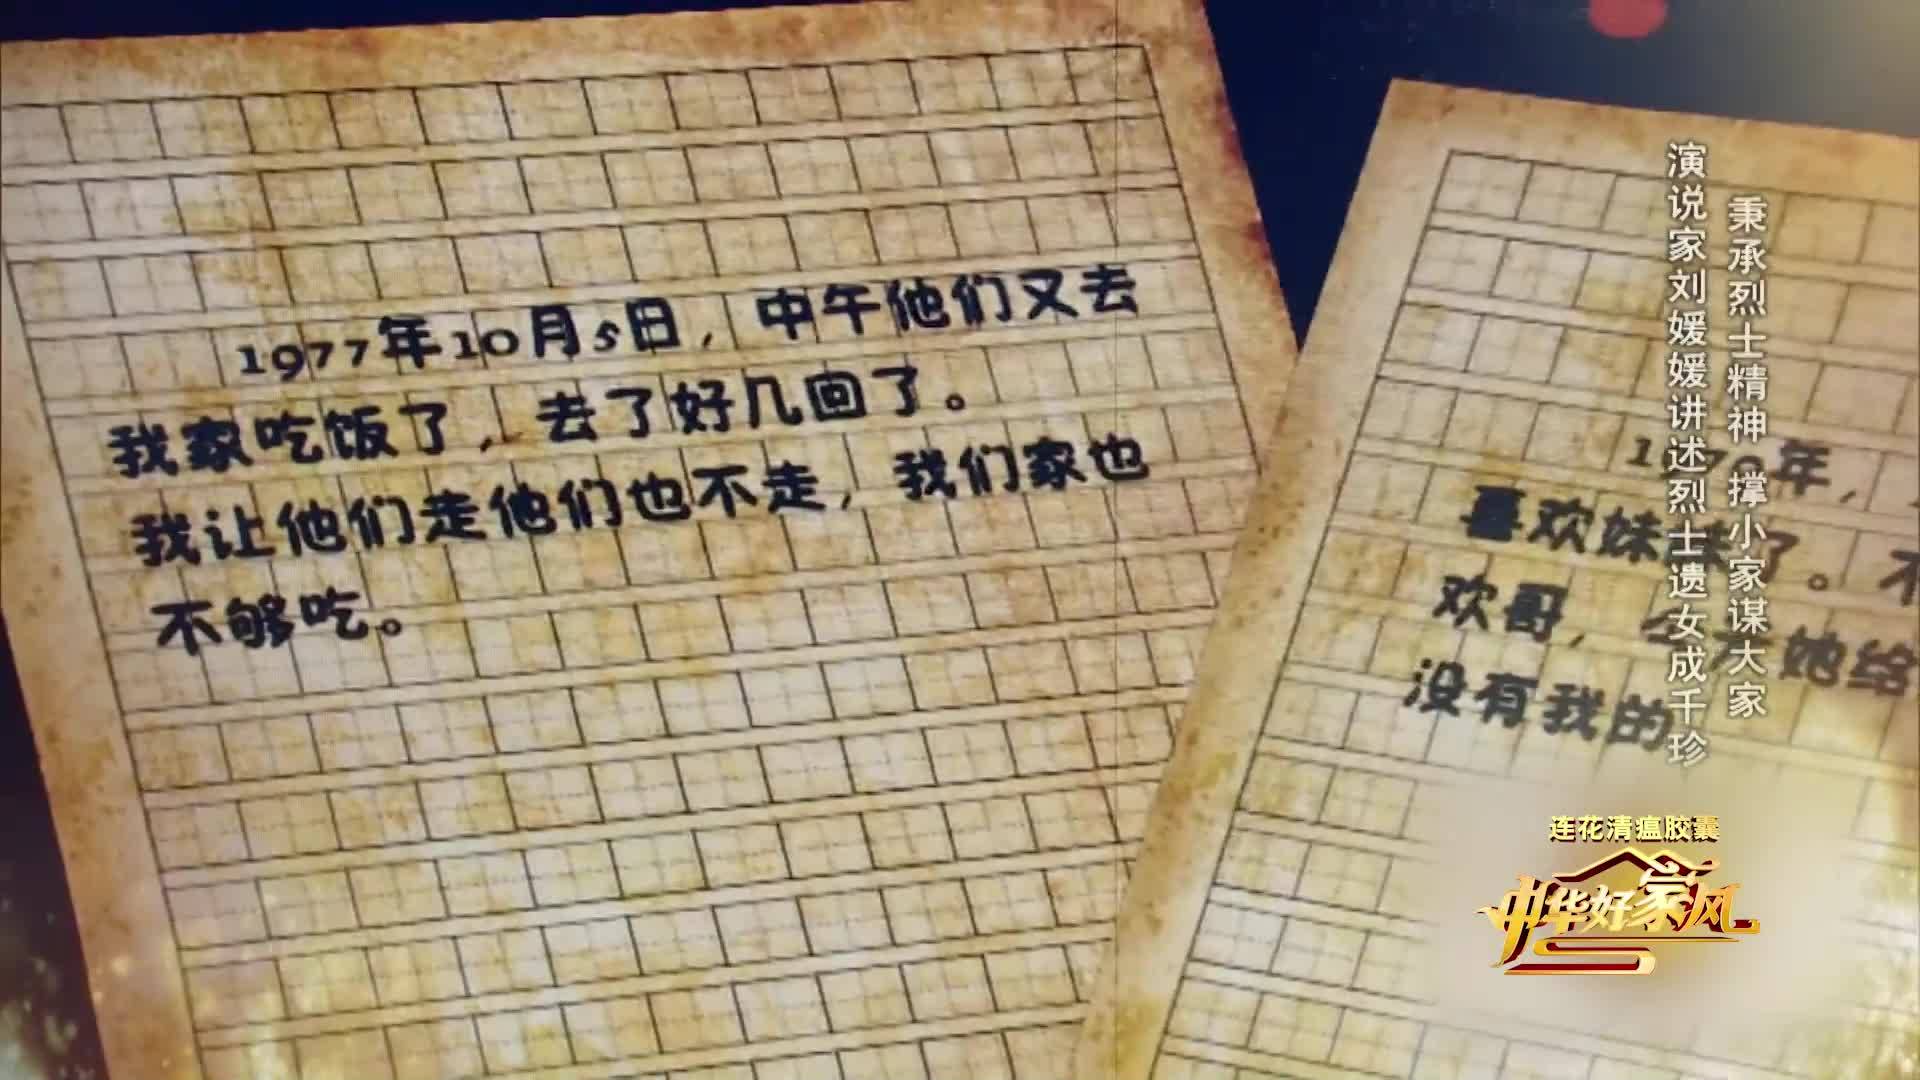 1977年10月5日，中午他们又去
我家吃饭了，去了好几回了。
我让他们走他们也不走，我们家也
不够吃。
喜欢妹妹了。不
欢哥，
她给
没有我的
秉承烈士精神 撑小家谋大家
演说家刘媛媛讲述烈士遗女成千珍
连花清瘟胶囊
中华好家风